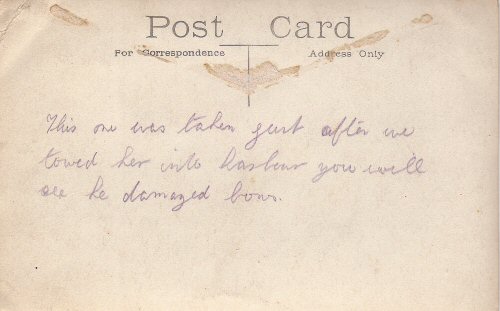 Post Card
For Correspondence Address Only
This one was taken just after we
towed her into harbour you will
see he damaged bows.